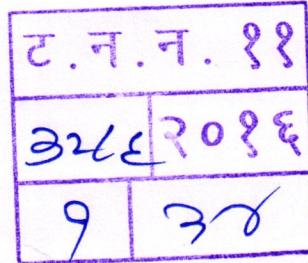 ट. न. न. ११
३५६ २०१६
१ ३४